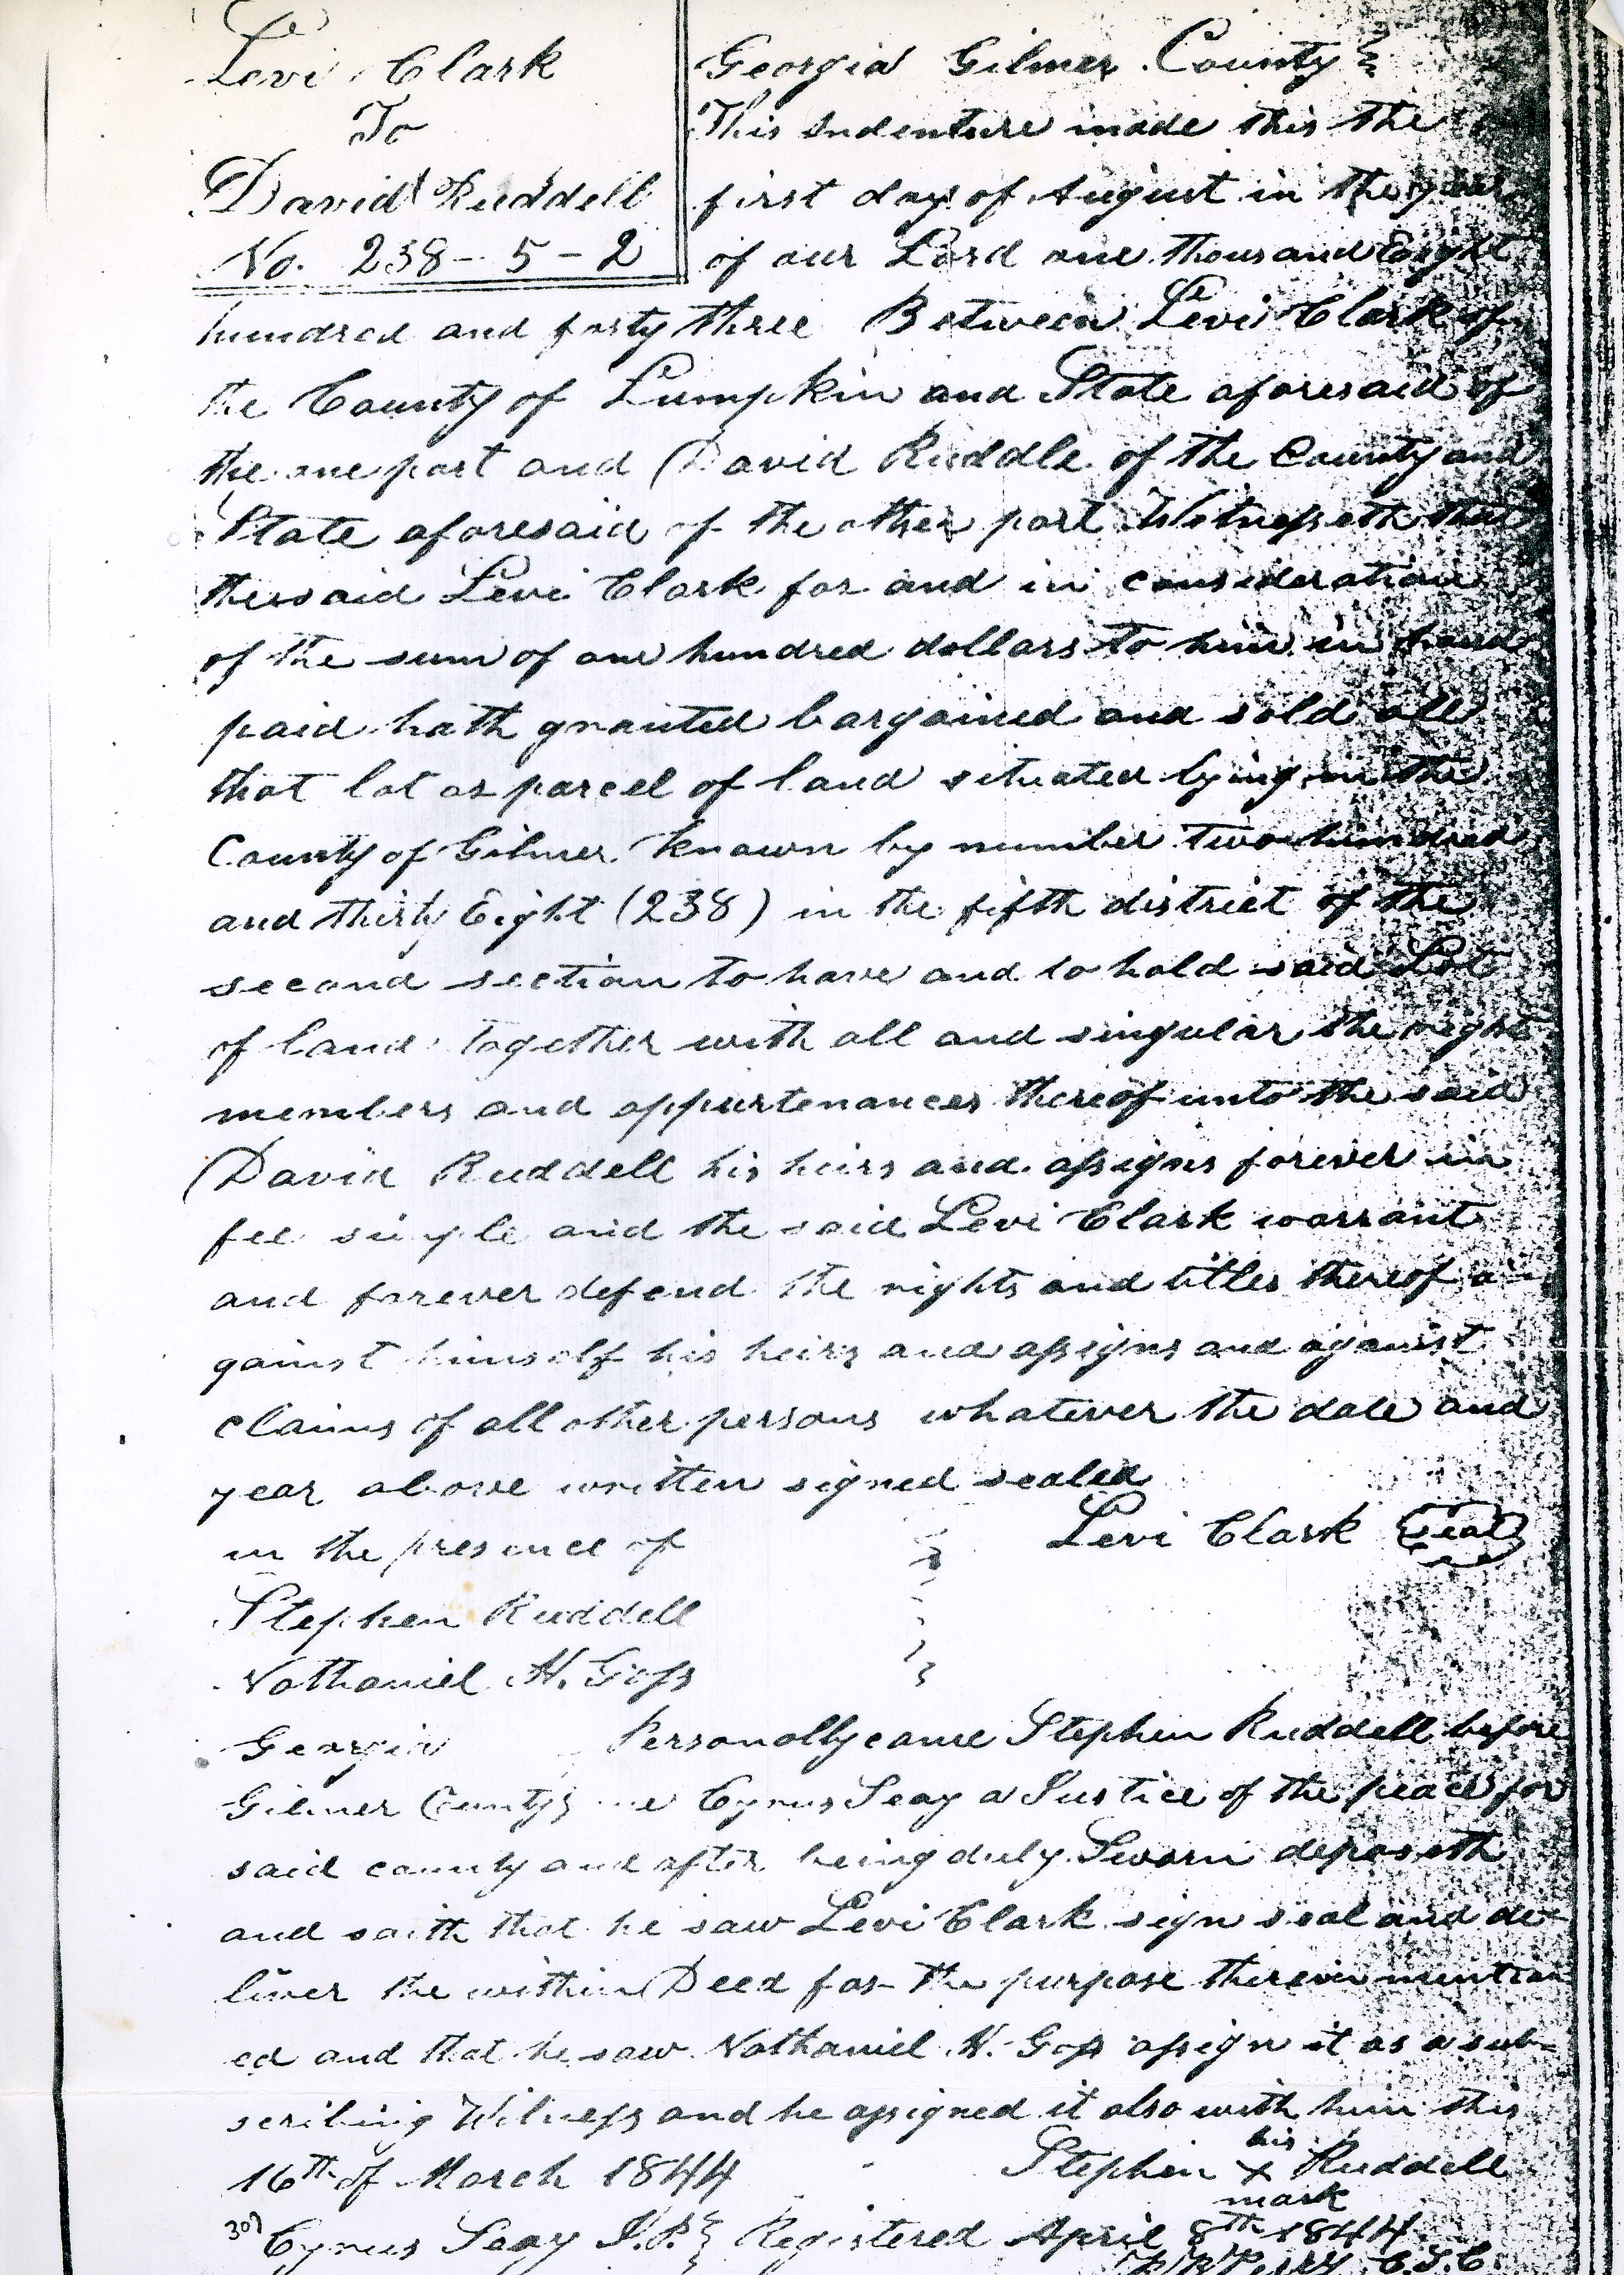 Levi Clark
To
David Ruddell
No. 238-5-2
Georgia Gilmer County
This Indenture made this the
first day of August in the year
of our Lord one thousand Eight
hundred and forty three Between Levi Clark of
the County of Lumpkin and State aforesaid of
the one part and David Ruddle of the County and
State aforesaid of the other part Witnesseth that
the said Levi Clark for and in consideration
of the sum of one hundred dollars to him in hand
paid hath granted bargained and sold all
that lot or parcel of land situated lying in the
County of Gilmer known by number two hundred
and thirty Eight (238) in the fifth district of the
second section to have and to hold said Lot
of land together with all and singular the rights
members and appurtenances thereof unto the said
David Ruddell his heirs and assigns forever in
fee simple and the said Levi Clark warrant
and forever defend the rights and titles thereof a-
gainst himself his heirs and assigns and against
claims of all other persons whatever the date and
year above written signed sealed
in the presence of
Levi Clark Seal
Stephen Ruddell
Nathaniel H. Goss
Georgia Personally came Stephen Ruddell before
Gilmer County me Cyrus Seay a Justice of the peace for
said county and after being duly Sworn deposeth
and saith that he saw Levi Clark sign seal and de-
liver the within Deed for the purpose therein mention
ed and that he saw Nathaniel H. Goss assign it as a sub-
scribing Witness and he assigned it also with him this
16th of March 1844
Stephen his x mark Ruddell
Cyrus Seay J.P. Registered April 8th 1844
Perry C.S.C.